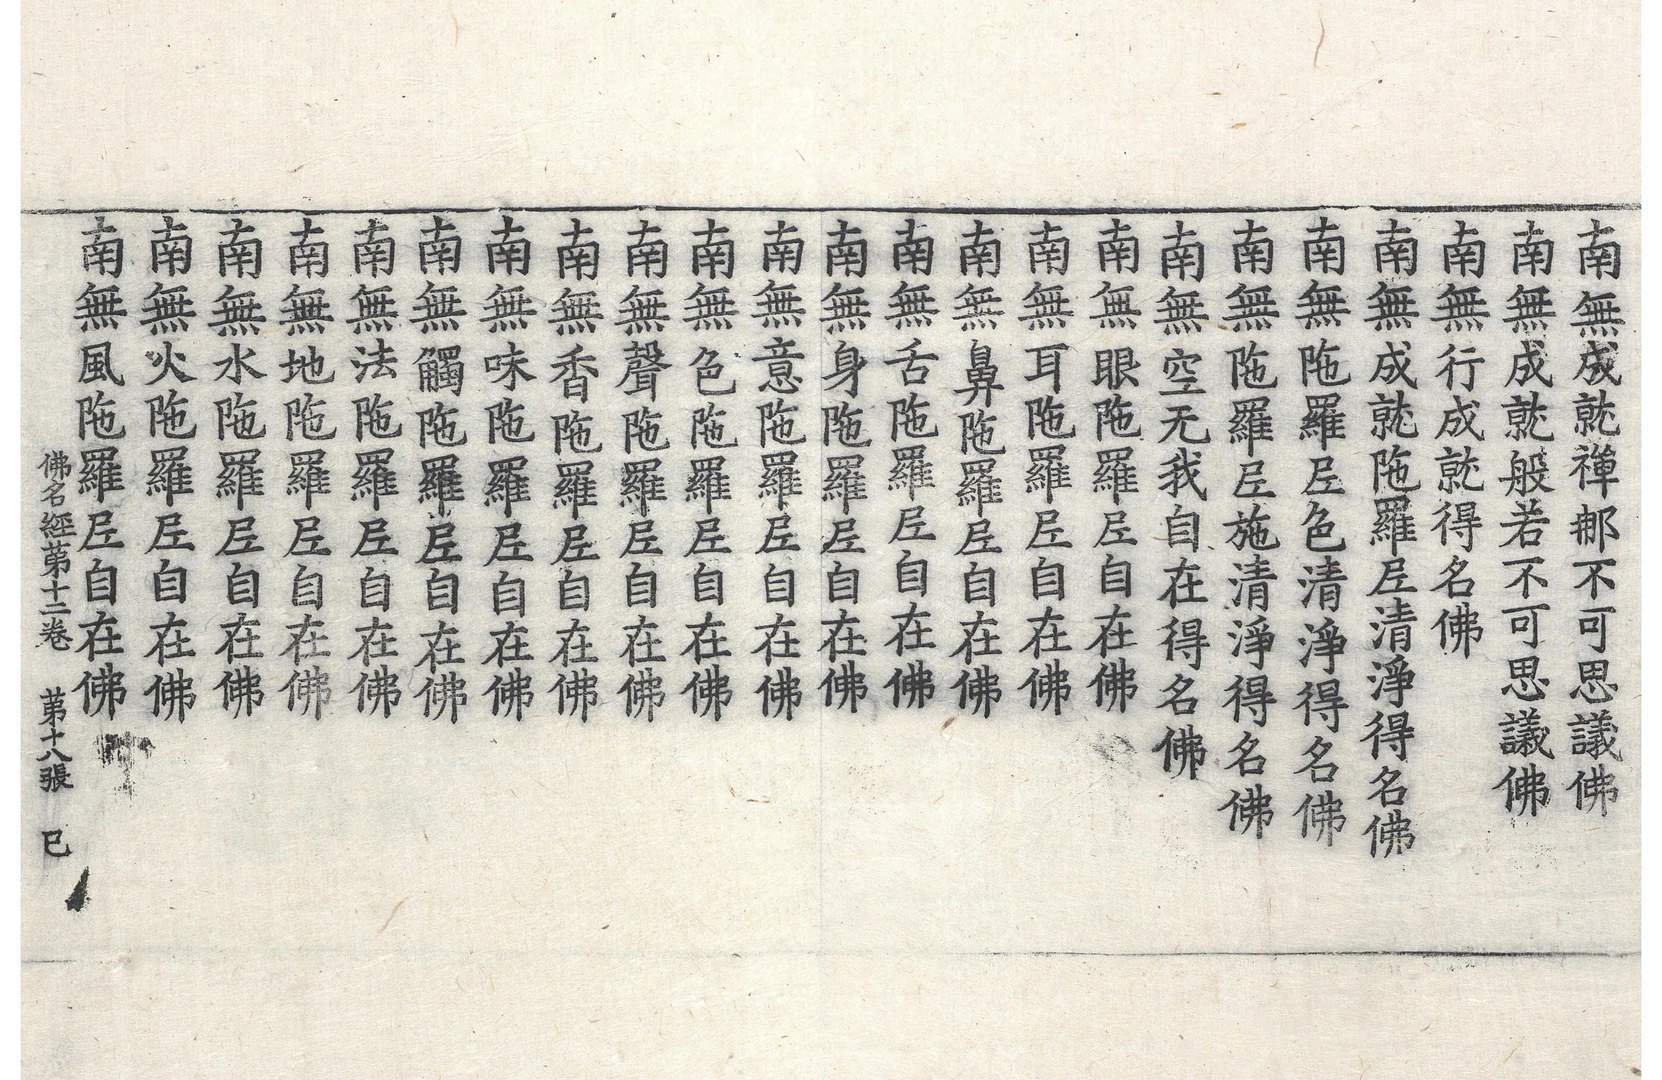 南無成就禪那不可思議佛
南無成就般若不可思議佛
南無行成就得名佛
南無成就陁羅𡰱清淨得名佛
南無陁羅𡰱色清淨得名佛
南無陁羅𡰱施清淨得名佛
南無空无我自在得名佛
南無眼陁羅𡰱自在佛
南無耳陁羅𡰱自在佛
南無鼻陁羅𡰱自在佛
南無舌陁羅𡰱自在佛
南無身陁羅𡰱自在佛
南無意陁羅𡰱自在佛
南無色陁羅𡰱自在佛
南無聲陁羅𡰱自在佛
南無香陁羅𡰱自在佛
南無味陁羅𡰱自在佛
南無觸陁羅𡰱自在佛
南無法陁羅𡰱自在佛
南無地陁羅𡰱自在佛
南無水陁羅𡰱自在佛
南無火陁羅𡰱自在佛
南無風陁羅𡰱自在佛
佛名經苐十二卷 苐十八張 巳